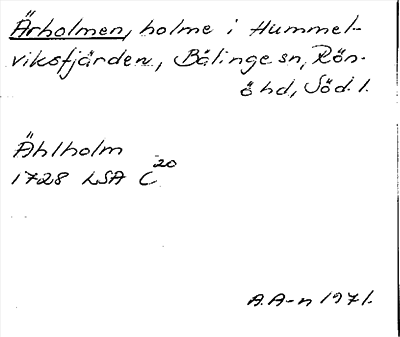 Ärholmen, holme i Hummel-
viksfjärden, Bälinge sn, Rön-
ö hd, Söd. l.
Ählholm
1728 LSA C20
A.A-n 1971.